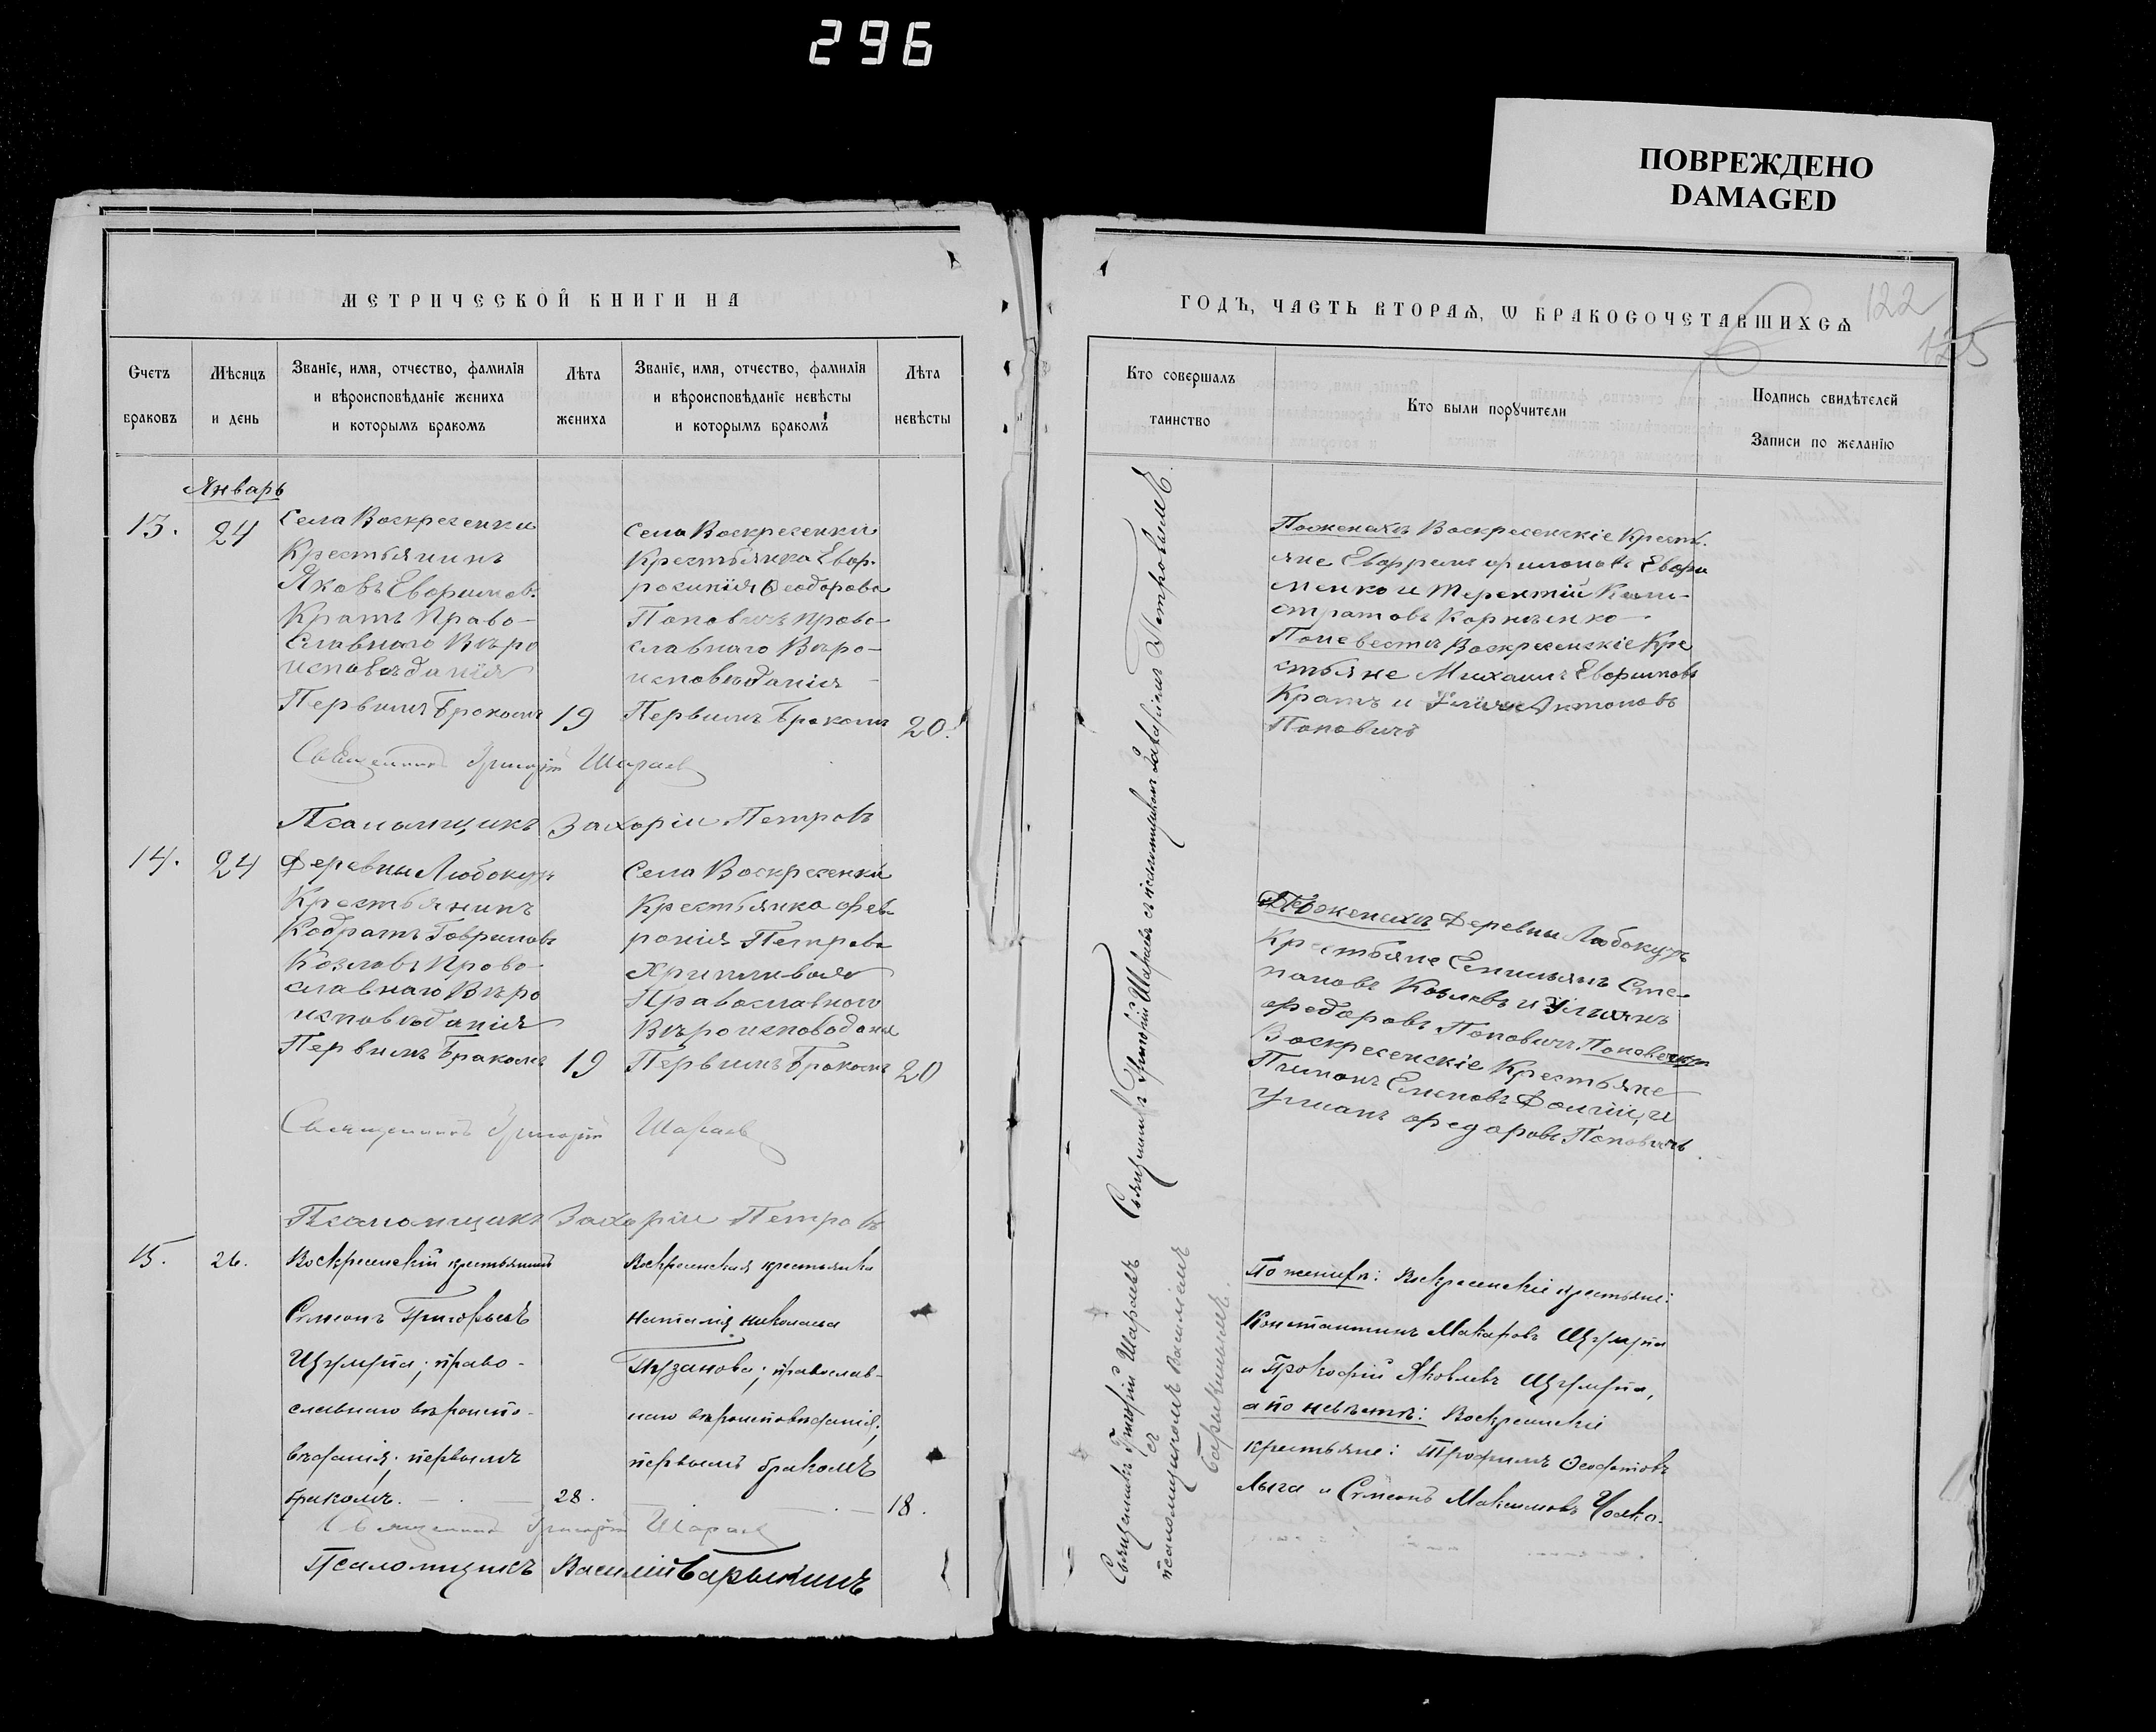 296
ПОВРЕЖДЕНО
DAMAGED
МЕТРИЧЕСКОЙ КНИГИ НА
Счетъ браковъ
Мѣсяцъ и день
Званіе, имя, отчество, фамилія
и вѣроисповѣданіе жениха
и которымъ бракомъ
Лѣта жениха
Званіе, имя, отчество, фамилія
и вѣроисповѣданіе невѣсты
и которымъ бракомъ
Лѣта невѣсты
Январь
13.
24
Села Воскресенки
Крестьянинъ
Яковъ Евфимов.
Кратъ Право-
славнаго Вѣро
исповѣданія
Первымъ Бракомъ
19
Села Воскресенки
Крестьянка Евф-
росинія Ѳеодорова
Поповичъ Право-
славнаго Вѣро-
исповѣданія
Первымъ Бракомъ
20.
Священникъ Григорій Шараевъ
Псаломщикъ Захарій Петровъ
14.
24
Деревны Любокутъ
Крестьянинъ
Кодратъ Гавриловъ
Козловъ Право-
славнаго Вѣро
исповѣданія
Первымъ Бракомъ
19
Села Воскресенки
Крестьянка Фев-
ронія Петрова
Хрипливая
Православного
Вѣроисповодания
Первымъ Бракомъ
20
Священникъ Григорій Шараевъ
Псаломщикъ Захарій Петровъ
15.
26.
Воскресенскій крестьянинъ
Симеонъ Григорьевъ
право-
славнаго вѣроиспо-
вѣданія; первымъ
бракомъ.
28.
Воскресенская крестьянка
Наталія Николаева
Пузанова; православ-
наго вѣроисповѣданія;
первымъ бракомъ
18.
Священникъ Григорій Шараевъ
Псаломщикъ Василій Барыкинъ
122
125
ГОДЪ, ЧАСТЬ ВТОРАѦ, Ѡ БРАКОСОЧЕТАВШИХСѦ
Кто совершалъ
таинство
Кто были порꙋчители
Подпись свидѣтелей
Записи по желанію
Священникъ Григорій Шараевъ съ псаломщикомъ Захаріемъ Петровымъ.
Поженихъ Воскресенскіе Кресть-
яне Филиповъ Ефри
менко и Терентій Кали-
стратовъ Корніенко
Поневестъ Воскресенскіе Кре
стьяне Михаилъ Евфимовъ
Кратъ и Антоновъ
Поповичъ
Поженихъ Деревны Любокутъ
Крестьяне Емильянъ Сте-
пановъ Козловъ и Улиянъ
Федоровъ Поповичъ. Поневестъ
Воскресенскіе Крестьяне
Пимонъ Долгій и
Улианъ Федоровъ Поповичъ.
Священникъ Григорій Шараевъ
съ
псаломщикомъ Василіемъ
Барыкинымъ.
По женихѣ: Воскресенскіе крестьяне:
Константинъ Макаровъ
и Прокофій Яковлевъ
а по невѣстѣ: Воскресенскіе
крестьяне: Трофимъ
Лыга и Симеонъ Максимовъ